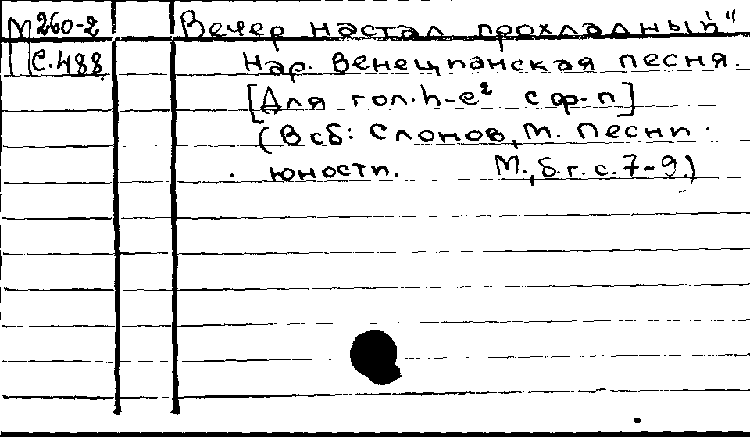 М 260-2 Вечер настал прохладный"
С.488 Нар. венецианская песня.
[Для гол. h-e² с ф-п]
(В сб: Слонов, М. Песни
юности. М., б.г. с. 7-9)